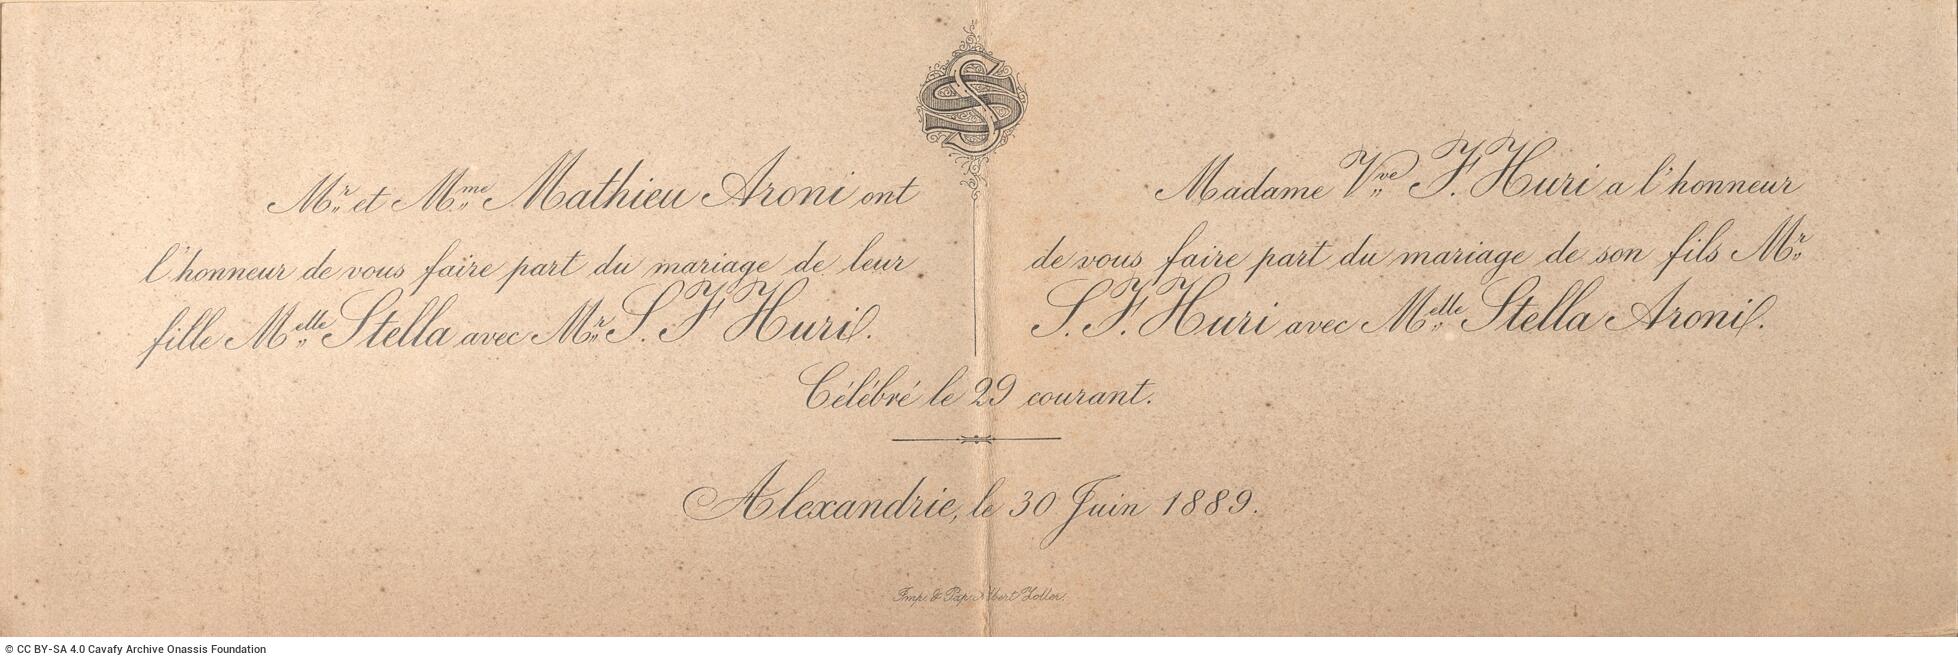 SS
Mr et Mme Mathieu Aroni ont
l'honneur de vous faire part du mariage de leur
fille Melle Stella avec Mr S. F. Huri.
Madame Vve F. Huri a l'honneur
de vous faire part du mariage de son fils Mr
S. F. Huri avec Melle Stella Aroni.
Célébré le 29 courant.
Alexandrie, le 30 Juin 1889.
Imp. & Pap. Albert Zoller.
© CC BY-SA 4.0 Cavafy Archive Onassis Foundation